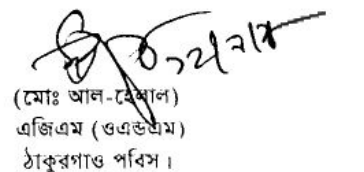 (মোঃ আল-হেলাল)
এজিএম (ওএন্ডএম)
ঠাকুরগাও পবিস।